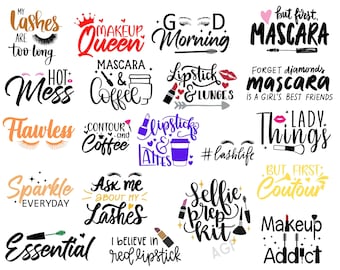 MY
Lashes
ARE
too long
MAKEUP
Queen
GOOD
Morning
but first,
MASCARA
HOT
Mess
MASCARA
&
Coffee
Lipstick
& LUNGES
FORGET diamonds
mascara
IS A GIRL'S BEST FRIENDS
Flawless
CONTOUR
and
Coffee
lipsticks
&
LATTES
#lashlife
LADY
Things
Sparkle
EVERYDAY
Ask me
ABOUT MY
Lashes
Selfie
prep
kit
BUT FIRST,
Contour
Essential
I BELIEVE IN
red lipstick
AGF
Makeup
Addict